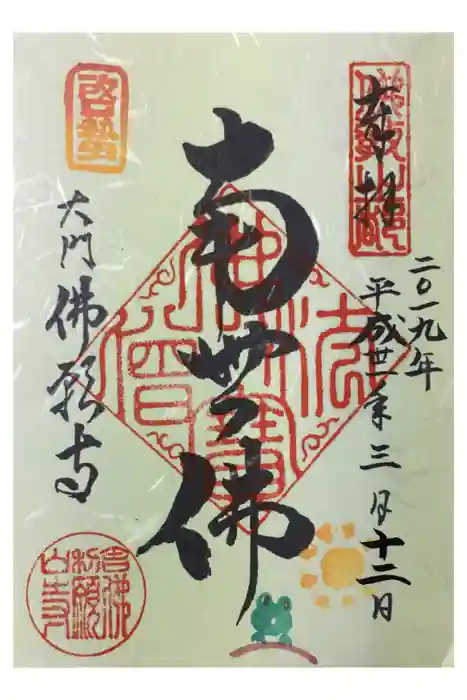 奉拝
二〇一九年
平成卅一年三月十二日
南無佛
佛法僧寳
大門
佛願寺
啓蟄